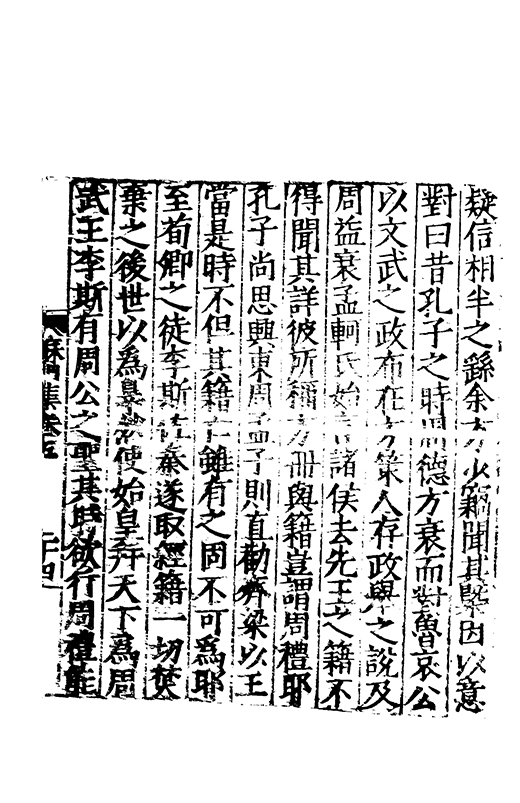 疑信相半之繇余方少竊聞其槩因以意
對曰昔孔子之時周德方衰而對魯哀公
以文武之政布在方策人存政舉之說及
周益衰孟軻氏始言諸侯去先王之籍不
得聞其詳彼所稱方冊與籍豈謂周禮耶
孔子尚思興東周孟子則直勸齊梁以王
當是時不但其籍亡雖有之固不可為耶
至荀卿之徒李斯在秦遂取經籍一切焚
棄之後世以為暴秦使始皇并天下為周
武王李斯有周公之聖其時欲行周禮能
集卷五
二十四